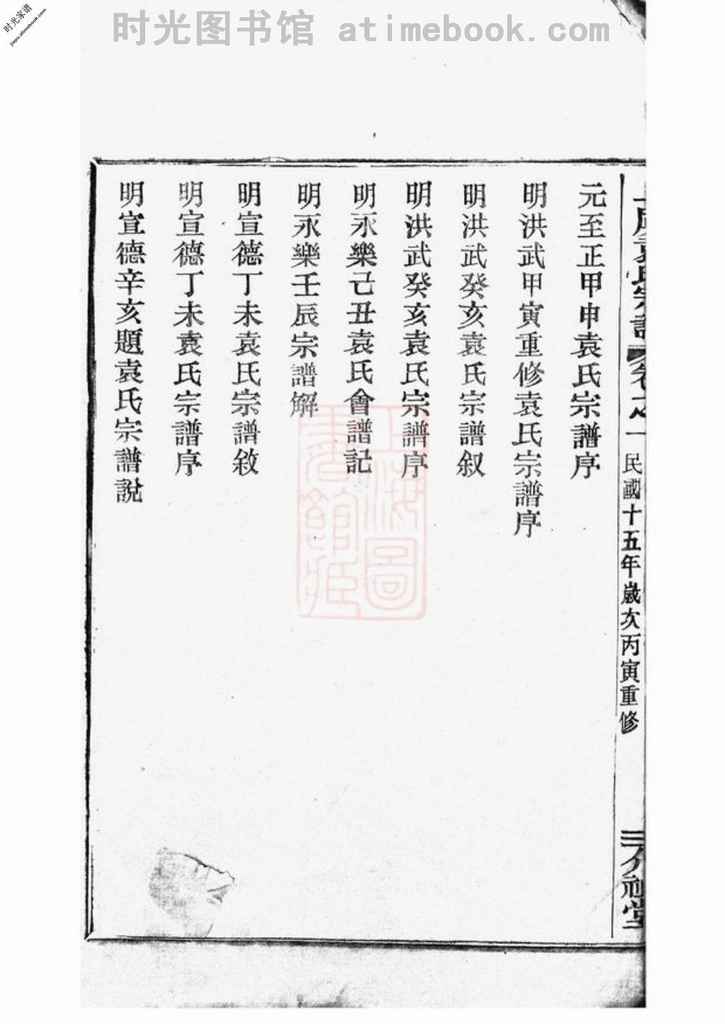 时光图书馆 atimebook.com
时光家谱
元至正甲申袁氏宗譜序
明洪武甲寅重修袁氏宗譜序
明洪武癸亥袁氏宗譜叙
明洪武癸亥袁氏宗譜序
明永樂己丑袁氏會譜記
明永樂壬辰宗譜解
明宣德丁未袁氏宗譜敘
明宣德丁未袁氏宗譜序
明宣德辛亥題袁氏宗譜說
袁氏宗譜 卷之一 民國十五年歲次丙寅重修